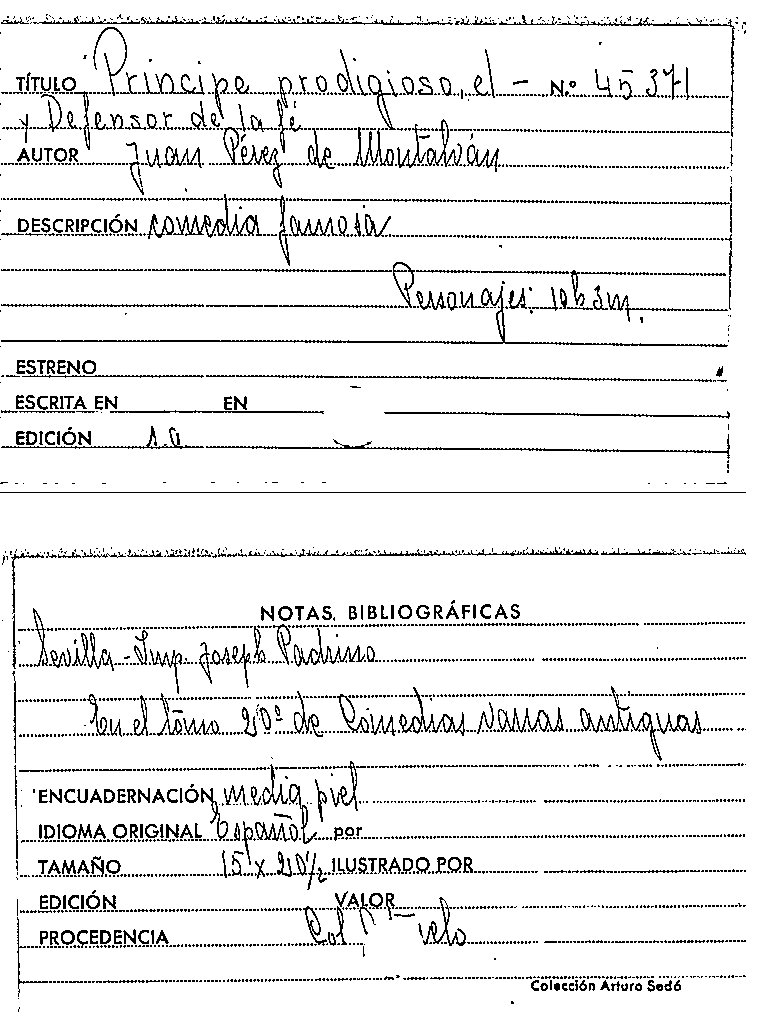 TÍTULO Principe prodigioso, el – N.º 45371
y Defensor de la fé
AUTOR Juan Pérez de Montalván
DESCRIPCIÓN comedia famosa
Personajes: 10h 3m.
ESTRENO
ESCRITA EN EN
EDICIÓN s.a
NOTAS BIBLIOGRÁFICAS
Sevilla - Imp. Joseph Padrino
En el tomo 20º de Comedias varias antiguas
ENCUADERNACIÓN media piel
IDIOMA ORIGINAL Español por
TAMAÑO 15 x 20½ ILUSTRADO POR
EDICIÓN VALOR
PROCEDENCIA Col
Colección Arturo Sedó